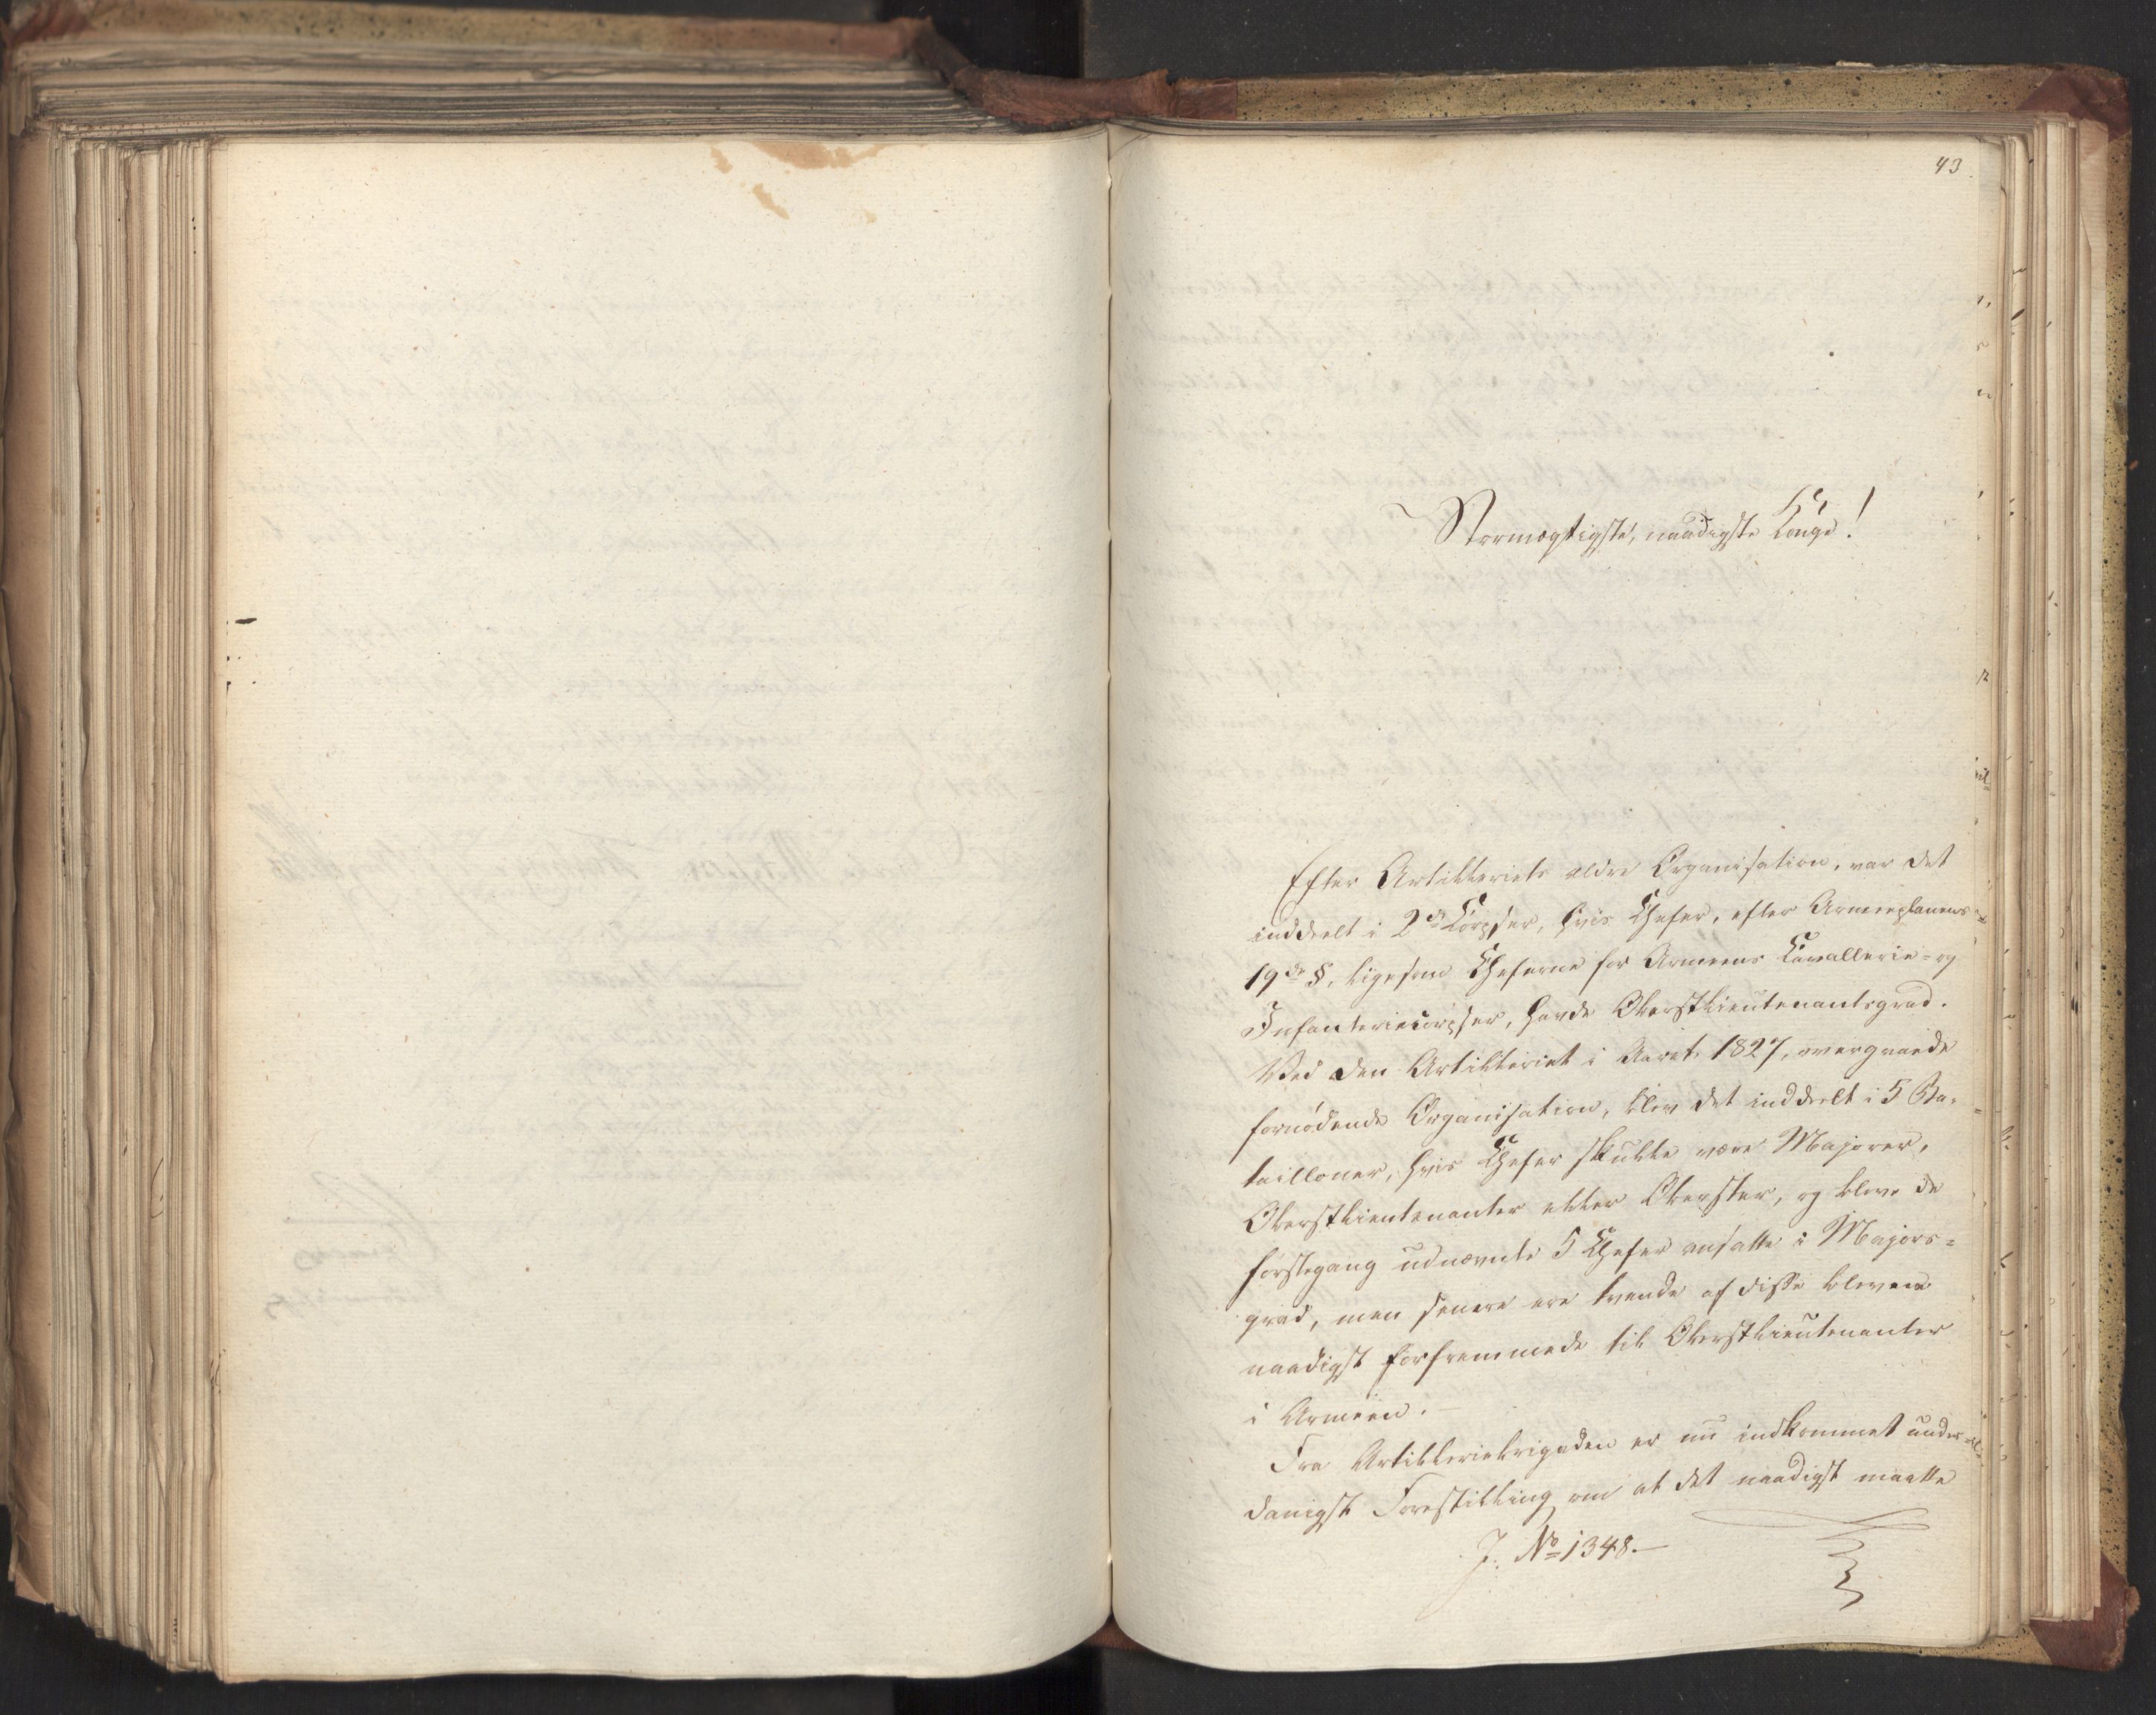 43
Stormægtigste, naadigste Konge!
Efter Artilleriets ældre Organisation, var det
inddeelt i 2de Corpser, hvis Chefer, efter Armeeplanens
19de §, ligesom Cheferne for Armeens Cavallerie- og
Infanteriecorpser, havde Oberstlieutenantsgrad.
Ved den Artilleriet i Aaret 1827, overgaaede
fornødende Organisation, blev det inddeelt i 5 Ba-
tailloner, hvis Chefer skulle være Majorer,
Oberstlieutenanter eller Oberster, og bleve de
førstegang udnævnte 5 Chefer ansatte i Majors-
grad, men senere ere tvende af disse blevne
naadigst forfremmede til Oberstlieutenanter
i Armeen.
Fra Artilleriebrigaden er nu indkommet under-
danigst Forestilling om at det naadigst maatte
J. No 1348.—